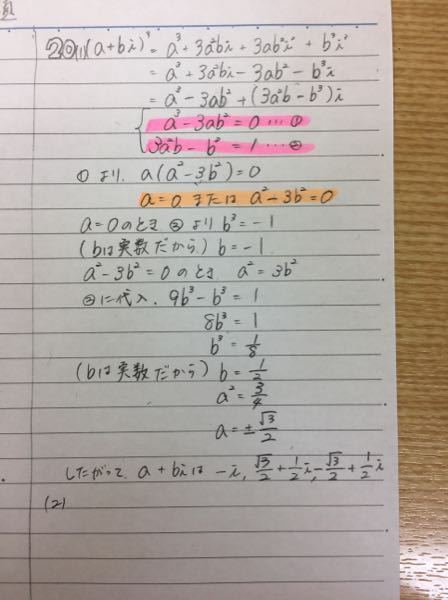 題
⑳(1)(a+bi)³ = a³+3a²bi+3ab²i²+b³i³
= a³+3a²bi-3ab²-b³i
= a³-3ab²+(3a²b-b³)i
a³-3ab²=0…①
3a²b-b³=1…②
①より. a(a²-3b²)=0
a=0 または a²-3b²=0
a=0のとき ②より b³=-1
(bは実数だから) b=-1
a²-3b²=0のとき, a²=3b²
②に代入. 9b³-b³=1
8b³=1
b³=1/8
(bは実数だから) b=1/2
a²=3/4
a=±√3/2
したがって a+biは -i, √3/2+1/2i, -√3/2+1/2i
(2)